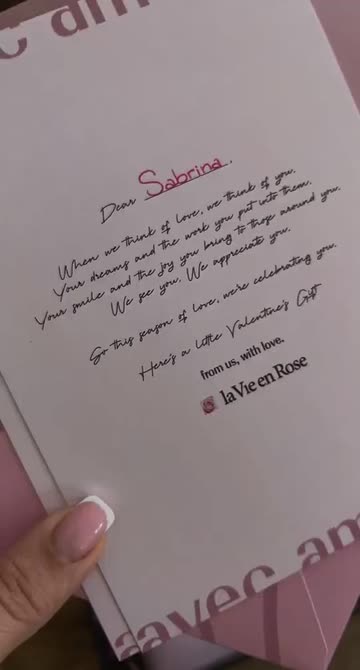 c am
Dear Sabrina.
When we think of love, we think of you.
Your dreams and the work you put into them.
Your smile and the joy you bring to those around you.
We see you. We appreciate you.
So this season of love, we're celebrating you.
Here's a little Valentine's Gift
from us, with love.
la Vie en Rose
avec am